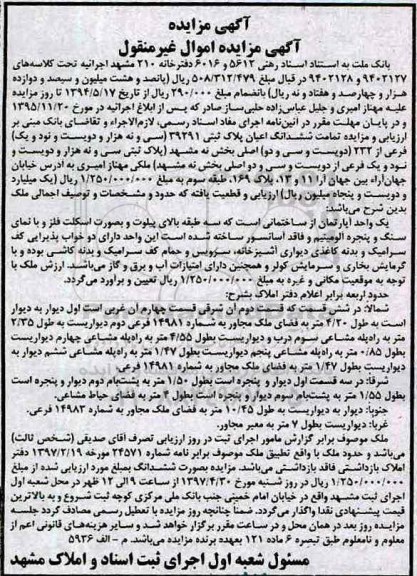 آگهی مزایده
آگهی مزایده اموال غیرمنقول
بانک ملت به استناد اسناد رهنی ۵۶۱۲ و ۶۰۱۶ دفترخانه ۲۱۰ مشهد اجرائیه تحت کلاسه‌های
۹۴۰۲۱۲۷ و ۹۴۰۲۱۲۸ در قبال مبلغ ۵۰۸/۳۱۲/۴۷۹ ریال (پانصد و هشت میلیون و سیصد و دوازده
هزار و چهارصد و هفتاد و نه ریال) بانضمام مبلغ ۲۹۰/۰۰۰ ریال از تاریخ ۱۳۹۴/۵/۱۷ تا روز مزایده
علیه مهناز امیری و جلیل عباس‌زاده حلبی‌ساز صادر که پس از ابلاغ اجرائیه در مورخ ۱۳۹۵/۱۱/۲۰
و در پایان مهلت مقرر در آئین‌نامه اجرای مفاد اسناد رسمی، لازم‌الاجراء و تقاضای بانک مبنی بر
ارزیابی و مزایده تمامت ششدانگ اعیان پلاک ثبتی ۳۹۲۹۱ (سی و نه هزار و دویست و نود و یک)
فرعی از ۲۳۲ (دویست و سی و دو) اصلی بخش نه مشهد (پلاک ثبتی سی و نه هزار و دویست و
نود و یک فرعی از دویست و سی و دو اصلی بخش نه مشهد) ملکی مهناز امیری به آدرس خیابان
جهان‌آراء بین جهان آرا ۱۱ و ۱۳، پلاک ۱۶۹، طبقه سوم به مبلغ ۱/۲۵۰/۰۰۰/۰۰۰ ریال (یک میلیارد
و دویست و پنجاه میلیون ریال) ارزیابی و قطعیت یافته که حدود و مشخصات و توصیف اجمالی ملک
بدین شرح می‌باشد:
یک واحد آپارتمان از ساختمانی است که سه طبقه بالای پیلوت و بصورت اسکلت فلز و با نمای
سنگ و پنجره آلومینیم و فاقد آسانسور ساخته شده است این واحد دارای دو خواب پذیرایی کف
سرامیک و بدنه کاغذی دیواری آشپزخانه، سرویس و حمام کف سرامیک و بدنه کاشی بوده و با
گرمایش بخاری و سرمایش کولر و همچنین دارای امتیازات آب و برق و گاز می‌باشند. ارزش ملک با
توجه به موقعیت مکانی و غیره به مبلغ ۱/۲۵۰/۰۰۰/۰۰۰ ریال تعیین و برآورد می‌گردد.
حدود اربعه برابر اعلام دفتر املاک بشرح:
شمالا: در شش قسمت که قسمت دوم آن شرقی قسمت چهارم آن غربی است اول دیوار به دیوار
است به طول ۴/۲۰ متر به فضای ملک مجاور به شماره ۱۴۹۸۱ فرعی دوم دیواریست به طول ۲/۳۵
متر به راه‌پله مشاعی سوم درب و دیواریست بطول ۴/۵۵ متر به راه‌پله مشاعی چهارم دیواریست
بطول ۰/۸۵ متر به راه‌پله مشاعی پنجم دیواریست بطول ۱/۴۷ متر به راه‌پله مشاعی ششم دیوار به
دیواریست بطول ۱/۴۷ متر به فضای ملک مجاور به شماره ۱۴۹۸۱ فرعی
شرقا: در سه قسمت اول دیوار و پنجره است بطول ۱/۵۰ متر به پشت‌بام دوم دیوار و پنجره است
بطول ۱/۵۵ متر به پشت‌بام سوم دیوار و پنجره است بطول ۴ متر به فضای حیاط مشاعی.
جنوبا: دیوار به دیواریست به طول ۱۰/۴۵ متر به فضای ملک مجاور به شماره ۱۴۹۸۳ فرعی.
غربا: دیواریست بطول ۷ متر به معبر مجاور.
ملک موصوف برابر گزارش مامور اجرای ثبت در روز ارزیابی تصرف آقای صدیقی (شخص ثالث)
می‌باشد و حدود ملک با واقع تطبیق ملک موصوف برابر نامه شماره ۲۴۵۷۱ مورخه ۱۳۹۷/۲/۱۹ دفتر
املاک بازداشتی فاقد بازداشتی می‌باشد. مزایده بصورت ششدانگ بمبلغ مورد ارزیابی شده از مبلغ
۱/۲۵۰/۰۰۰/۰۰۰ ریال در روز شنبه مورخ ۱۳۹۷/۴/۳۰ از ساعت ۹ الی ۱۲ ظهر در محل شعبه اول
اجرای ثبت مشهد واقع در خیابان امام خمینی جنب بانک ملی مرکزی کوچه ثبت شروع و به بالاترین
قیمت پیشنهادی نقدا واگذار می‌گردد. ضمنا چنانچه روز مزایده با تعطیل رسمی مصادف گردد جلسه
مزایده روز بعد در همان محل و در ساعت مقرر برگزار خواهد شد و سایر هزینه‌های قانونی اعم از
معلوم و نامعلوم طبق تبصره ۶ ماده ۱۲۱ بعهده برنده مزایده می‌باشد. م - الف ۵۹۳۶
مسئول شعبه اول اجرای ثبت اسناد و املاک مشهد